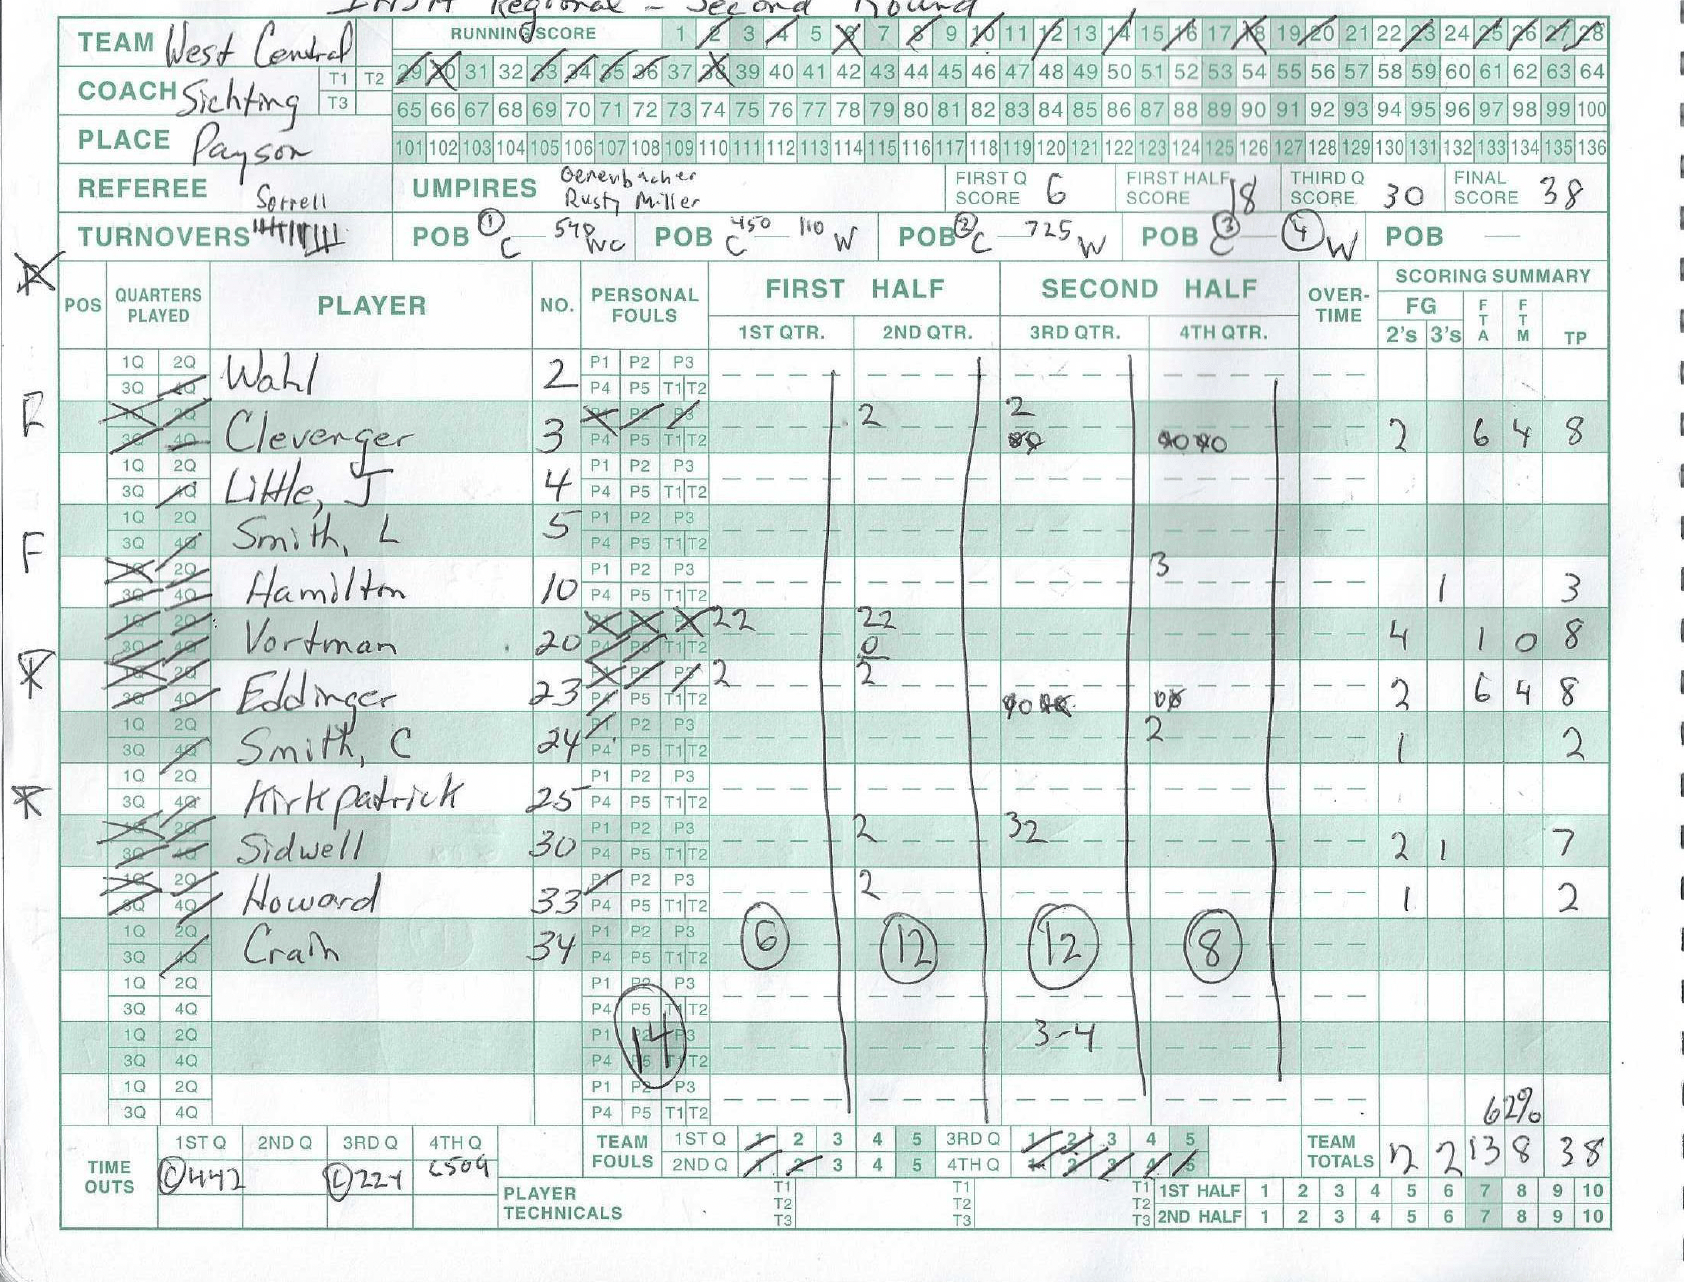 IHSA Regional - Second Round
TEAM West Central RUNNING SCORE 1 2 3 4 5 6 7 8 9 10 11 12 13 14 15 16 17 18 19 20 21 22 23 24 25 26 27 28
29 30 31 32 33 34 35 36 37 38 39 40 41 42 43 44 45 46 47 48 49 50 51 52 53 54 55 56 57 58 59 60 61 62 63 64
COACH Sichting T1 T2 T3
65 66 67 68 69 70 71 72 73 74 75 76 77 78 79 80 81 82 83 84 85 86 87 88 89 90 91 92 93 94 95 96 97 98 99 100
PLACE Payson 101 102 103 104 105 106 107 108 109 110 111 112 113 114 115 116 117 118 119 120 121 122 123 124 125 126 127 128 129 130 131 132 133 134 135 136
REFEREE Sorrell UMPIRES Genenbacher Rusty Miller FIRST Q SCORE 6 FIRST HALF SCORE 18 THIRD Q SCORE 30 FINAL SCORE 38
TURNOVERS POB 1 C 540 WC POB C 450 110 W POB 2 C 725 W POB 3 C 4 W POB
POS QUARTERS PLAYED PLAYER NO. PERSONAL FOULS FIRST HALF SECOND HALF OVER-TIME SCORING SUMMARY
1ST QTR. 2ND QTR. 3RD QTR. 4TH QTR. FG 2's 3's FTA FTM TP
1Q 2Q P1 P2 P3
3Q 4Q Wahl 2 P4 P5 T1 T2
1Q 2Q P1 P2 P3 2 2
3Q 4Q Clevenger 3 P4 P5 T1 T2 2 6 4 8
1Q 2Q P1 P2 P3
3Q 4Q Little, J 4 P4 P5 T1 T2
1Q 2Q P1 P2 P3
3Q 4Q Smith, L 5 P4 P5 T1 T2
F
1Q 2Q P1 P2 P3 3
3Q 4Q Hamilton 10 P4 P5 T1 T2 1 3
1Q 2Q P1 P2 P3 22 22
3Q 4Q Vortman 20 P4 P5 T1 T2 0 4 1 0 8
1Q 2Q P1 P2 P3 2 2
3Q 4Q Eddinger 23 P4 P5 T1 T2 2 6 4 8
1Q 2Q P1 P2 P3 2
3Q 4Q Smith, C 24 P4 P5 T1 T2 1 2
1Q 2Q P1 P2 P3
3Q 4Q Kirkpatrick 25 P4 P5 T1 T2
1Q 2Q P1 P2 P3 2 32
3Q 4Q Sidwell 30 P4 P5 T1 T2 2 1 7
1Q 2Q P1 P2 P3 2
3Q 4Q Howard 33 P4 P5 T1 T2 1 2
1Q 2Q P1 P2 P3 6 12 12 8
3Q 4Q Crain 34 P4 P5 T1 T2
1Q 2Q P1 P2 P3
3Q 4Q P4 P5 T1 T2
1Q 2Q P1 P2 P3 14 3-4
3Q 4Q P4 P5 T1 T2
1Q 2Q P1 P2 P3
3Q 4Q P4 P5 T1 T2 62%
TIME OUTS 1ST Q 2ND Q 3RD Q 4TH Q TEAM FOULS 1ST Q 1 2 3 4 5 3RD Q 1 2 3 4 5 TEAM TOTALS 12 2 13 8 38
C 442 C 224 C509 2ND Q 1 2 3 4 5 4TH Q 1 2 3 4 5
PLAYER TECHNICALS T1 T2 T3 T1 T2 T3 T1 T2 T3 1ST HALF 1 2 3 4 5 6 7 8 9 10
2ND HALF 1 2 3 4 5 6 7 8 9 10